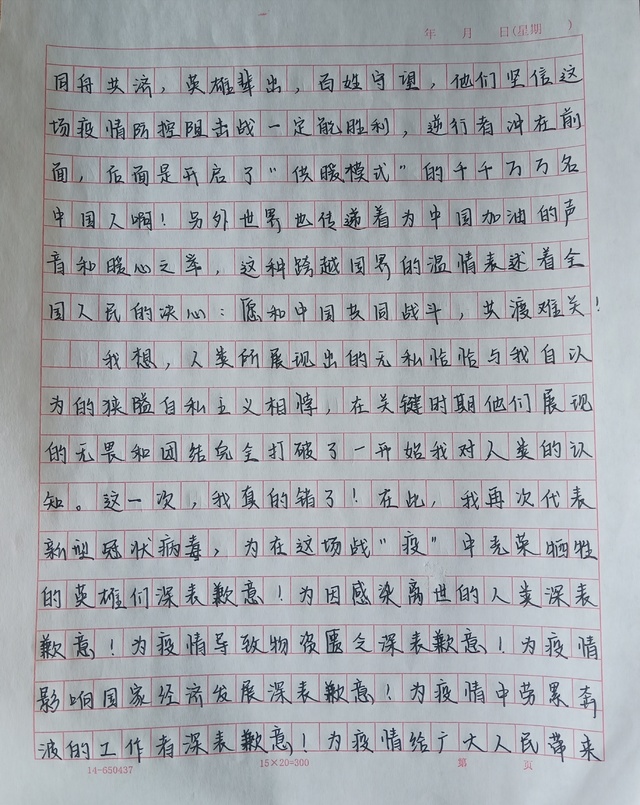 年 月 日(星期 )
同舟共济，英雄辈出，百姓守望，他们坚信这
场疫情防控阻击战一定能胜利，逆行者冲在前
面，后面是开启了“供暖模式”的千千万万名
中国人啊！另外世界也传递着为中国加油的声
音和暖心之举，这种跨越国界的温情表述着全
国人民的决心：愿和中国共同战斗，共渡难关！
我想，人类所展现出的无私恰恰与我自以
为的狭隘自私主义相悖，在关键时期他们展现
的无畏和团结完全打破了一开始我对人类的认
知。这一次，我真的错了！在此，我再次代表
新型冠状病毒，为在这场战“疫”中光荣牺牲
的英雄们深表歉意！为因感染离世的人类深表
歉意！为疫情导致物资匮乏深表歉意！为疫情
影响国家经济发展深表歉意！为疫情中劳累奔
波的工作者深表歉意！为疫情给广大人民带来
14-650437 15×20=300 第 页